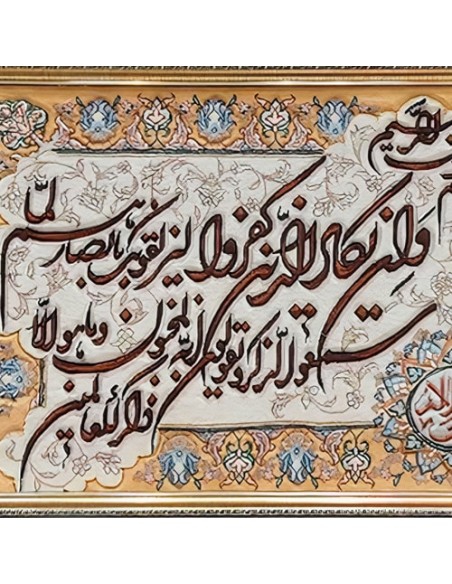 الرحیم
وان یکاد الذین کفروا لیزلقونک بابصارهم لما
سمعوا الذکر و یقولون انه لمجنون و ما هو الا
ذکر للعالمین